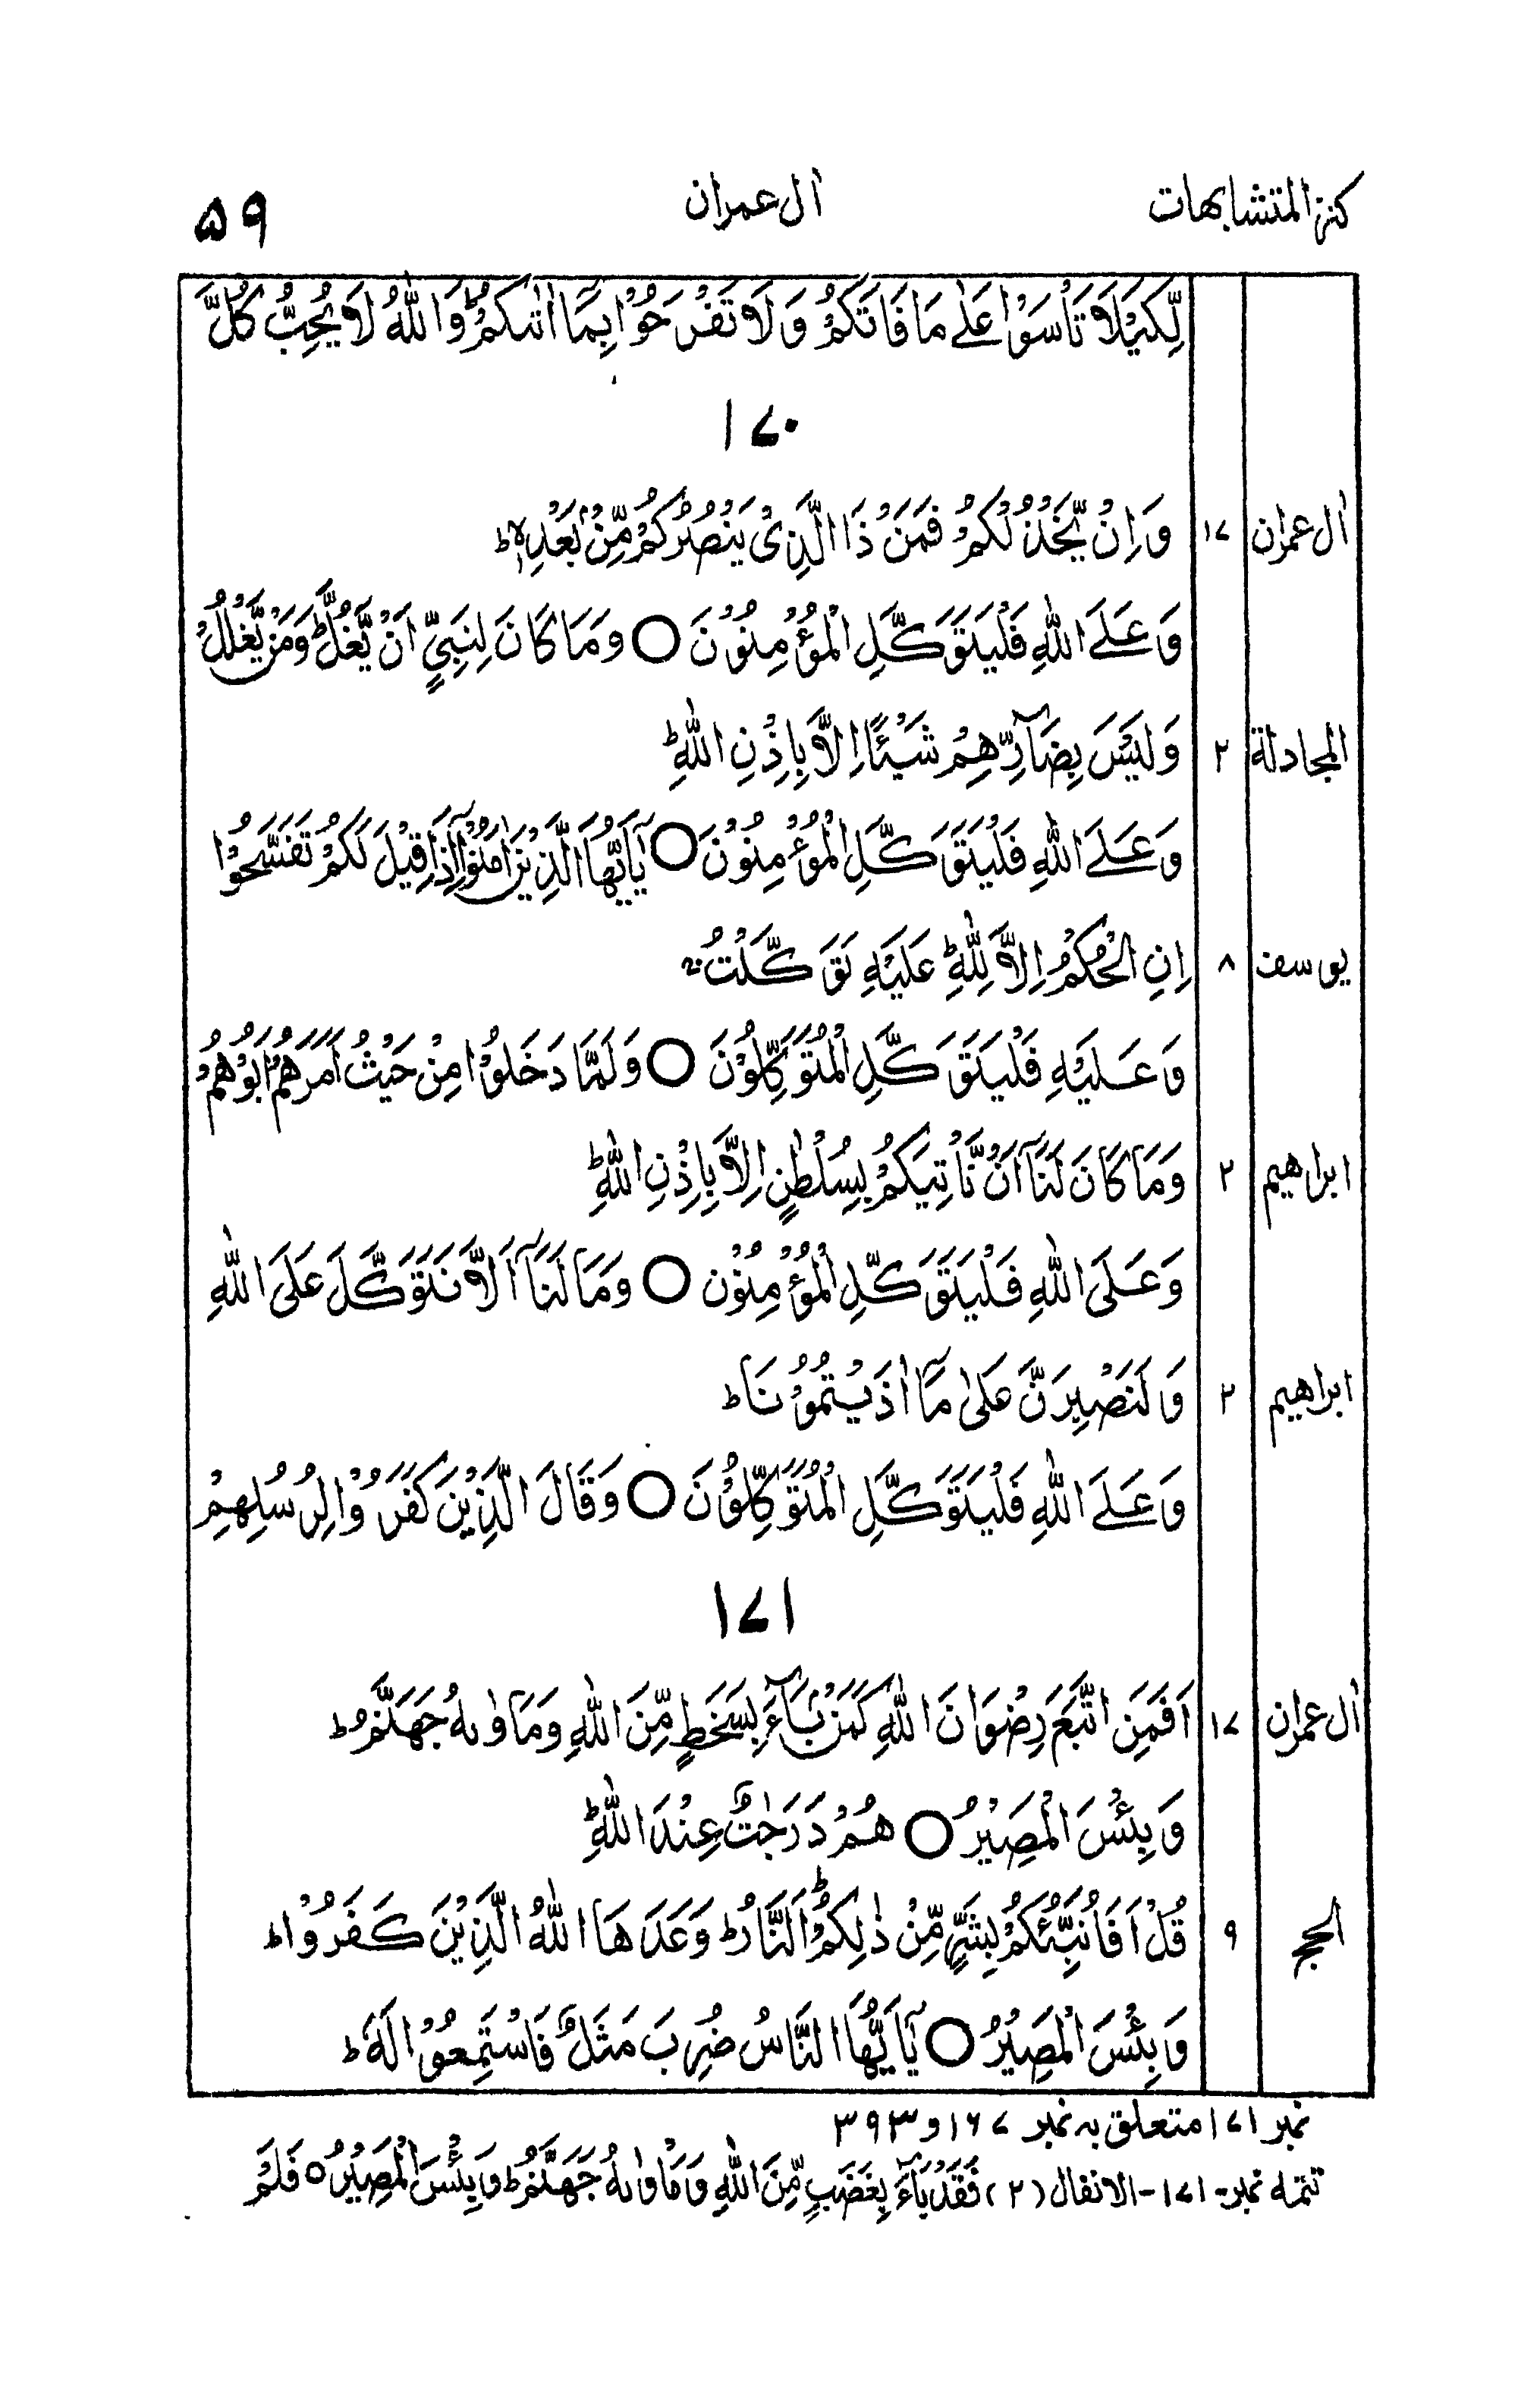 كنز المتشابهات اٰل عمران ۵۹
لِّكَيْلَا تَاْسَوْا عَلٰى مَا فَاتَكُمْ وَلَا تَفْرَحُوْا بِمَآ اٰتٰىكُمْ ؕ وَاللّٰهُ لَا يُحِبُّ كُلَّ
۱۷۰
اٰل عمران ۱۷ وَاِنْ يَّخْذُلْكُمْ فَمَنْ ذَا الَّذِىْ يَنْصُرُكُمْ مِّنْۢ بَعْدِهٖ ؕ
وَعَلَى اللّٰهِ فَلْيَتَوَكَّلِ الْمُؤْمِنُوْنَ ○ وَمَا كَانَ لِنَبِىٍّ اَنْ يَّغُلَّ ؕ وَمَنْ يَّغْلُلْ
المجادلة ۲ وَلَيْسَ بِضَآرِّهِمْ شَيْئًا اِلَّا بِاِذْنِ اللّٰهِ ؕ
وَعَلَى اللّٰهِ فَلْيَتَوَكَّلِ الْمُؤْمِنُوْنَ ○ يٰٓاَيُّهَا الَّذِيْنَ اٰمَنُوْٓا اِذَا قِيْلَ لَكُمْ تَفَسَّحُوْا
يوسف ۸ اِنِ الْحُكْمُ اِلَّا لِلّٰهِ ؕ عَلَيْهِ تَوَكَّلْتُ ۚ
وَعَلَيْهِ فَلْيَتَوَكَّلِ الْمُتَوَكِّلُوْنَ ○ وَلَمَّا دَخَلُوْا مِنْ حَيْثُ اَمَرَهُمْ اَبُوْهُمْ
ابراهيم ۲ وَمَا كَانَ لَنَآ اَنْ نَّاْتِيَكُمْ بِسُلْطٰنٍ اِلَّا بِاِذْنِ اللّٰهِ ؕ
وَعَلَى اللّٰهِ فَلْيَتَوَكَّلِ الْمُؤْمِنُوْنَ ○ وَمَا لَنَآ اَلَّا نَتَوَكَّلَ عَلَى اللّٰهِ
ابراهيم ۲ وَلَنَصْبِرَنَّ عَلٰى مَآ اٰذَيْتُمُوْنَا ؕ
وَعَلَى اللّٰهِ فَلْيَتَوَكَّلِ الْمُتَوَكِّلُوْنَ ○ وَقَالَ الَّذِيْنَ كَفَرُوْا لِرُسُلِهِمْ
۱۷۱
اٰل عمران ۱۷ اَفَمَنِ اتَّبَعَ رِضْوَانَ اللّٰهِ كَمَنْۢ بَآءَ بِسَخَطٍ مِّنَ اللّٰهِ وَمَاْوٰىهُ جَهَنَّمُ ؕ
وَبِئْسَ الْمَصِيْرُ ○ هُمْ دَرَجٰتٌ عِنْدَ اللّٰهِ ؕ
الحج ۹ قُلْ اَفَاُنَبِّئُكُمْ بِشَرٍّ مِّنْ ذٰلِكُمْ ؕ اَلنَّارُ ؕ وَعَدَهَا اللّٰهُ الَّذِيْنَ كَفَرُوْا ؕ
وَبِئْسَ الْمَصِيْرُ ○ يٰٓاَيُّهَا النَّاسُ ضُرِبَ مَثَلٌ فَاسْتَمِعُوْا لَهٗ ؕ
نمبر ۱۷۱ متعلق به نمبر ۱۶۷ و ۳۹۳
تتمه نمبر- ۱۷۱- الانفال (۲) فَقَدْ بَآءَ بِغَضَبٍ مِّنَ اللّٰهِ وَمَاْوٰىهُ جَهَنَّمُ ؕ وَبِئْسَ الْمَصِيْرُ ○ فَلَمْ